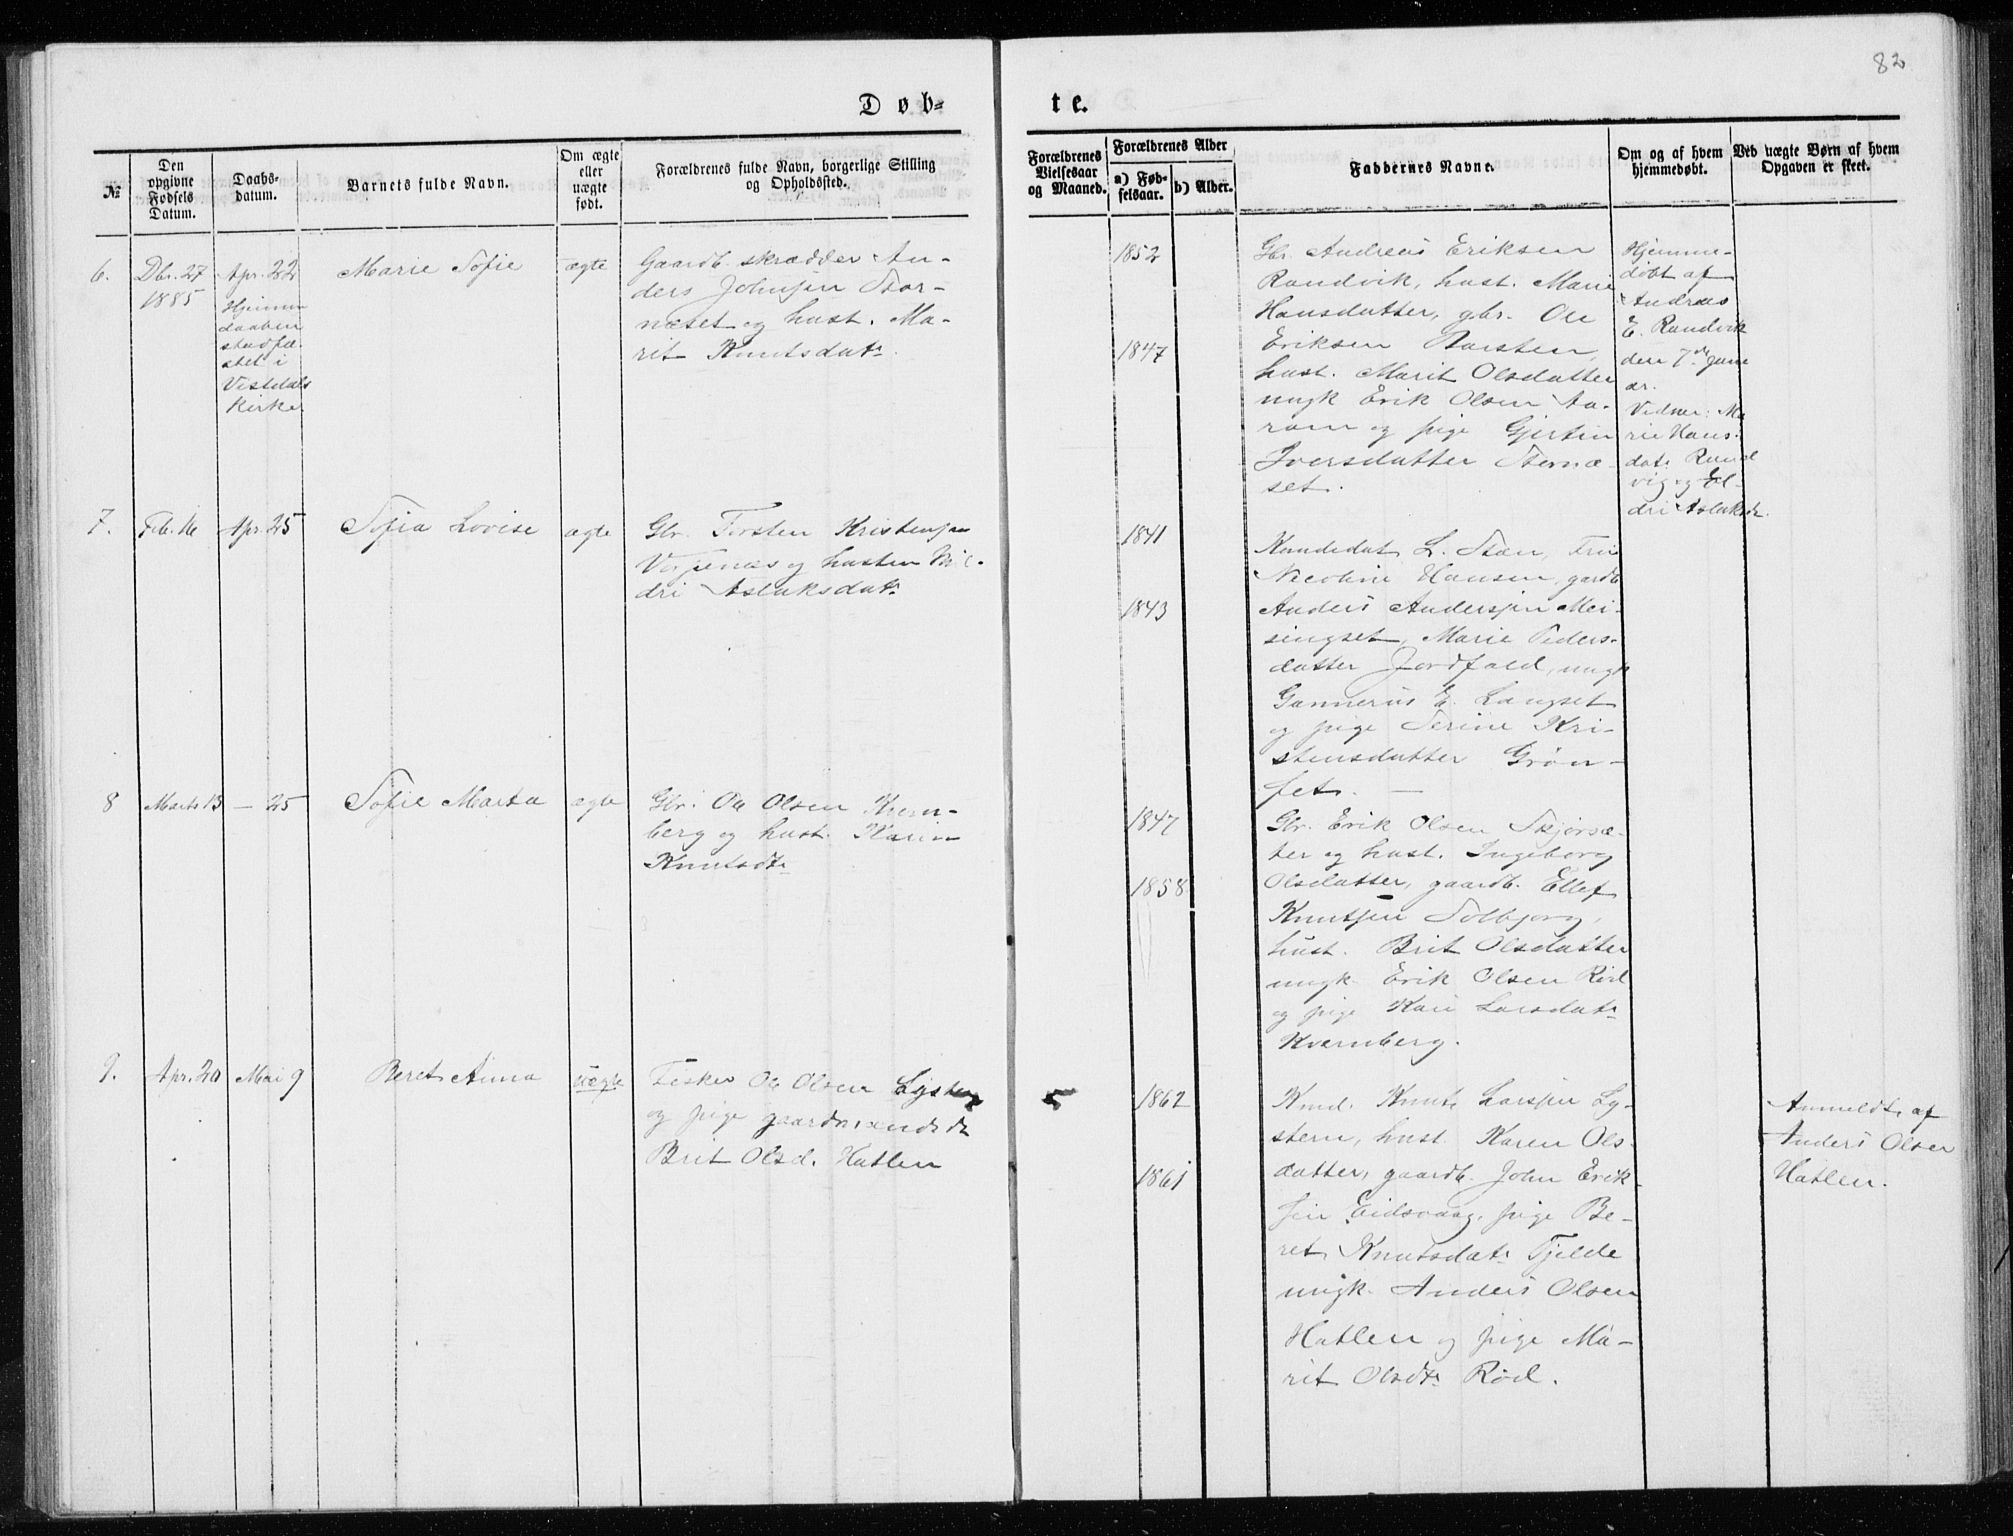 82
Døb-
te.
№
Den
opgivne
Fødsels
Datum.
Daabs-
datum.
Barnets fulde Navn.
Om ægte
eller
uægte
født.
Forældrenes fulde Navn, borgerlige Stilling
og Opholdssted.
Forældrenes
Vielsesaar
og Maaned.
Forældrenes Alder
a) Fød-
selsaar.
b) Alder.
Faddernes Navne.
Om og af hvem
hjemmedøbt.
Ved uægte Børn af hvem
Opgaven er skeet.
6.
Dbr. 27
1885
Apr. 22
Hjemme
daaben
stadfæ-
stet i
Vistdals
Kirke
Marie Sofie
ægte
Gaardb. skrædder An-
ders Johnsen Stor-
næset og hust. Ma-
rit Knutsdatr
1852
1847
Gbr. Andreas Eriksen
Randvik, hust. Marie
Hansdatter, gbr. Ole
Eriksen
hust. Marit Olsdatter
ungk Erik Olsen Aa-
ram og pige Gjertin
Iversdatter Stornæ-
set.
Hjemme-
døbt af
Andreas
E. Randvik
den 7de Janu
ar.
Vidner: Ma
rie Hans-
datr Rand
vig og El-
dri Aslaksdr.
7.
Feb. 16
Apr. 25
Sofia Lovise
ægte
Gbr. Torsten Kristensen
og husten
dri Aslaksdatr
1841
1843
Kandidat L. Steen, Fru
Nicoline Hansen, gardb
Anders Andersen Mei-
singset, Marie Peders-
datter Jordfald, ungk
Gunnerus E. Langset
og pige Serine Kri-
stensdatter Grøn-
set. —
8
Marts 13
— 25
Sofie Marta
ægte
Gbr. Ole Olsen Kvern-
berg og hust. Karin
Knutsdtr
1847
1858
Gbr. Erik Olsen Skjørsæ-
ter og hust. Ingeborg
Olsdatter, gaardb. Ellef
Knutsen Solbjørg,
hust. Brit Olsdatter
ungk Erik Olsen Rød
og pige Kari Larsdatr
Kvernberg.
9.
Apr. 20
Mai 9
Beret Anna
uægte
Fisker Ole Olsen
og pige gaardmandsdr
Brit Olsd. Hatlen
1862
1861
Kmd. Knut Larsen Ly-
stern, hust. Karen Ols-
datter, gaardb. John Erik-
sen Eidsvaag, pige Be-
ret Knutsdatr Tjelde
ungk. Anders Olsen
Hatlen og pige Ma-
rit Olsdtr Rød.
Anmeldt af
Anders Olsen
Hatlen.